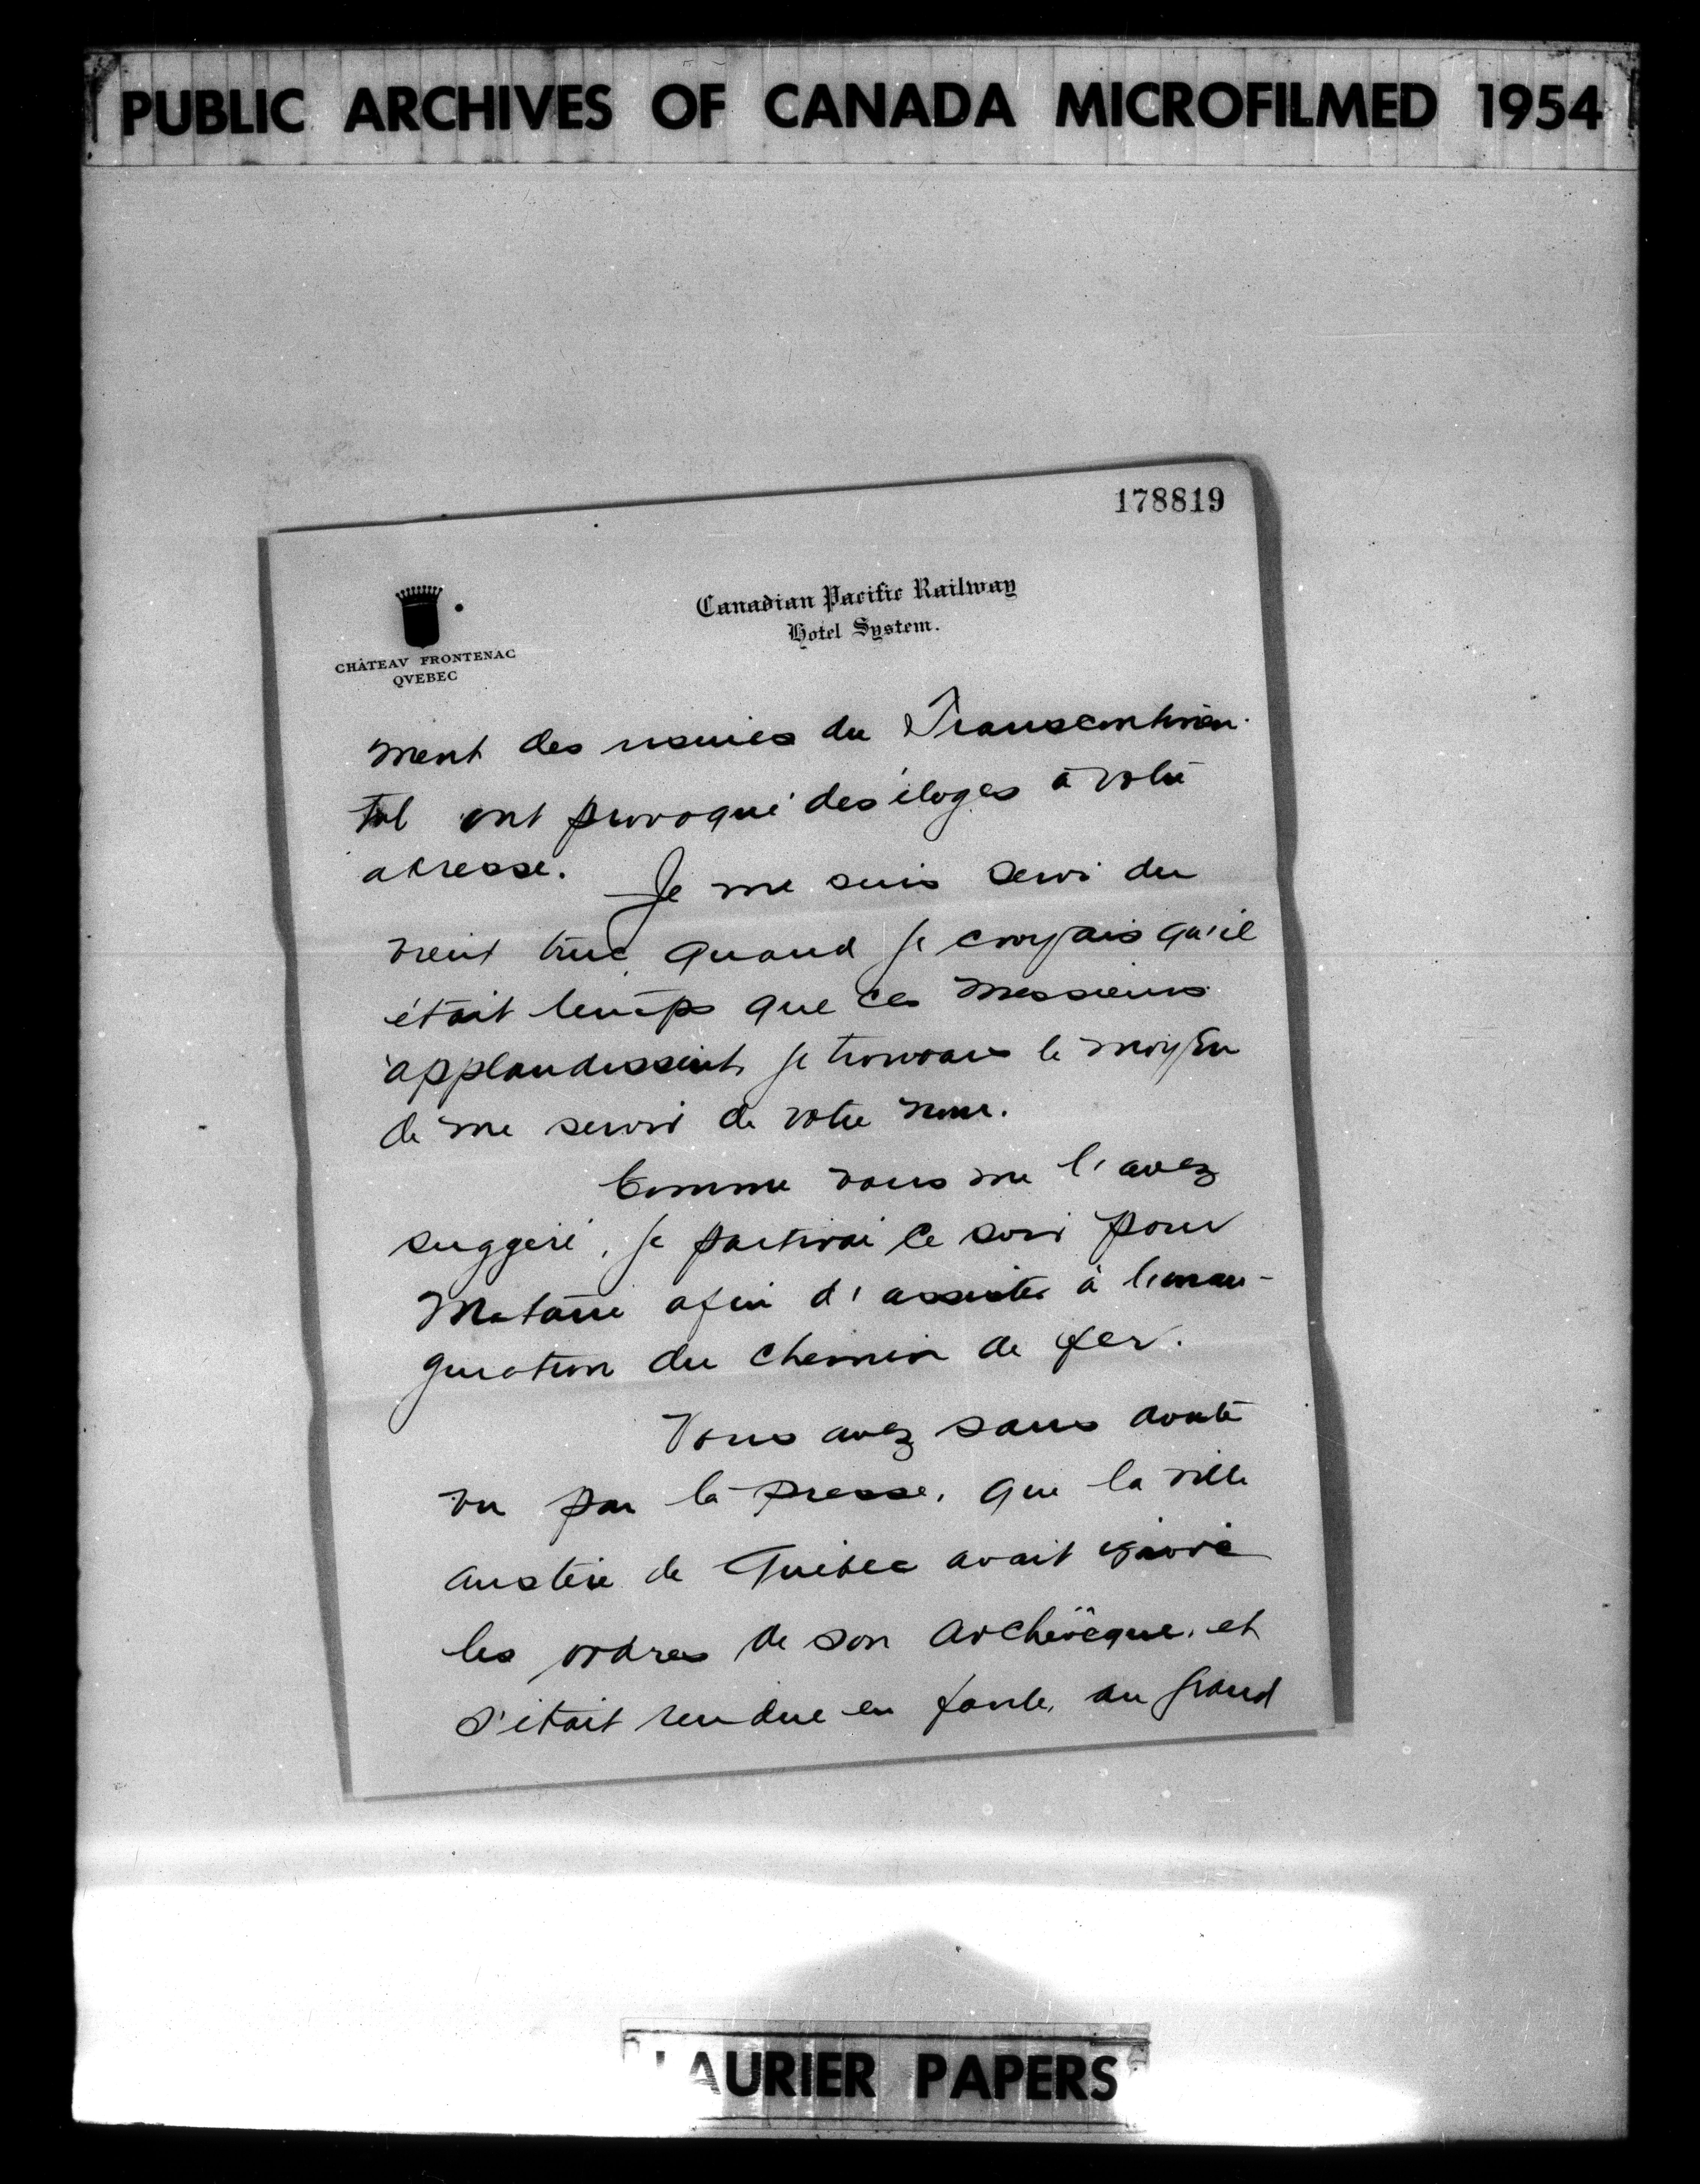 PUBLIC ARCHIVES OF CANADA MICROFILMED 1954
178819
Canadian Pacific Railway
Hotel System.
CHÂTEAV FRONTENAC
QVEBEC
ment des usines du Transcontinen-
tal ont provoqué des éloges à votre
adresse. Je me suis servi du
vieux truc, quand je croyais qu'il
était temps que ces Messieurs
applaudissent, je trouvais le moyen
de me servir de votre nom.
Comme vous me l'avez
suggéré, je partirai ce soir pour
Matane afin d'assister à l'inau-
guration du chemin de fer.
Vous avez sans doute
vu par la presse, que la ville
austère de Québec avait ignoré
les ordres de son archevêque, et
s'était rendue en foule, au grand
LAURIER PAPERS